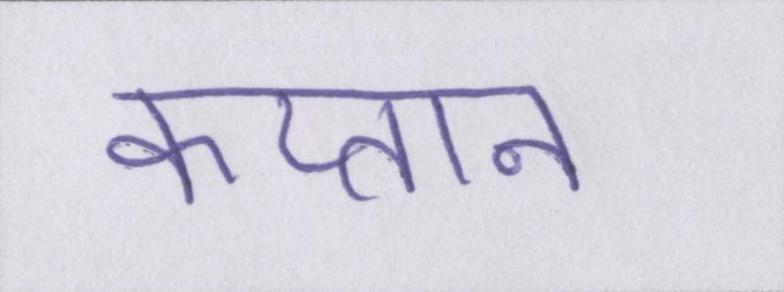 कप्तान